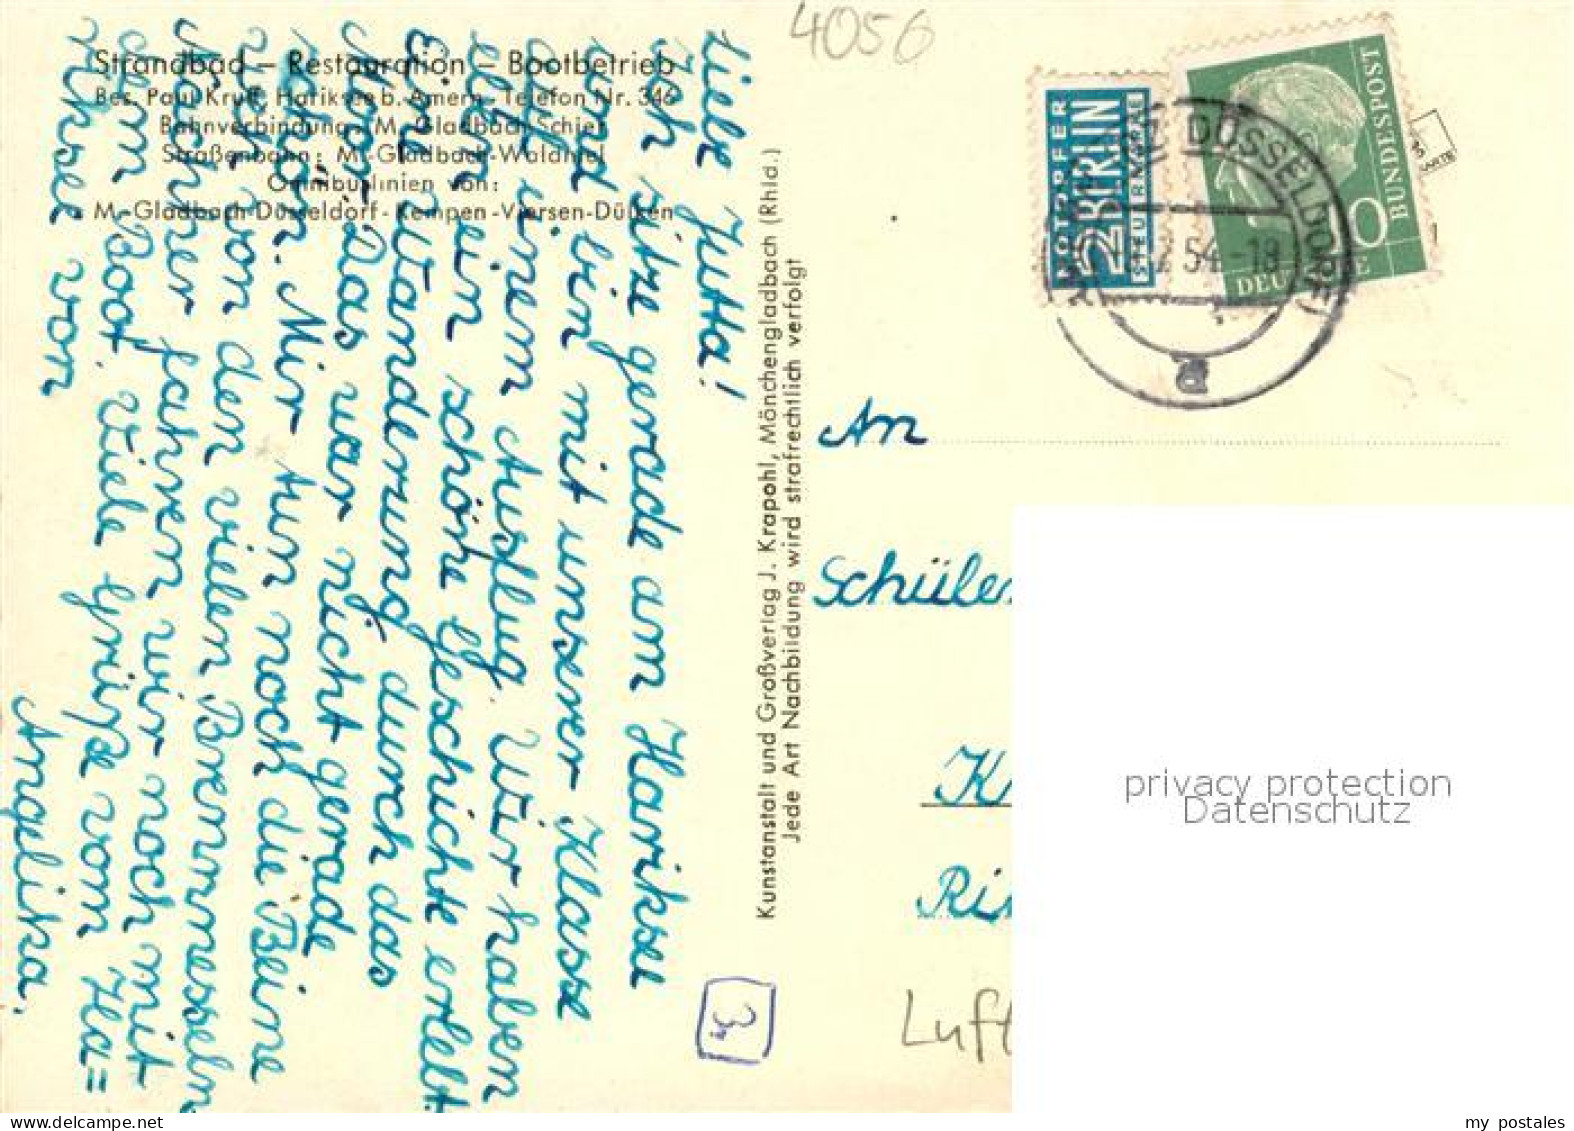 Strandbad – Restauration – Bootbetrieb
Bes. Paul Kruff, Hariksee b. Amern - Telefon Nr. 346
Bahnverbindung: M. Gladbach-Schier
Straßenbahn: M.-Gladbach-Waldniel
Omnibuslinien von:
M.-Gladbach-Düsseldorf-Kempen-Viersen-Dülken
Liebe Jutta!
Ich sitze gerade am Hariksee
und bin mit unserer Klasse
auf einem Ausflug. Wir haben
eben ein schöne Geschichte erlebt.
Eine Wanderung durch das
Moor. Das war nicht gerade
schön. Mir tun noch die Beine
weh von den vielen Brennnesseln
Nachher fahren wir noch mit
dem Boot. Viele Grüße vom Ha=
riksee von
Angelika.
Kunstanstalt und Großverlag J. Krapohl, Mönchengladbach (Rhld.)
Jede Art Nachbildung wird strafrechtlich verfolgt
3,
4056
NOTOPFER
2 BERLIN
STEUERMARKE
DÜSSELDORF
54.-18
a
BUNDESPOST
DEU
An
Schüler
K
Ri
Luft
privacy protection
Datenschutz
my postales